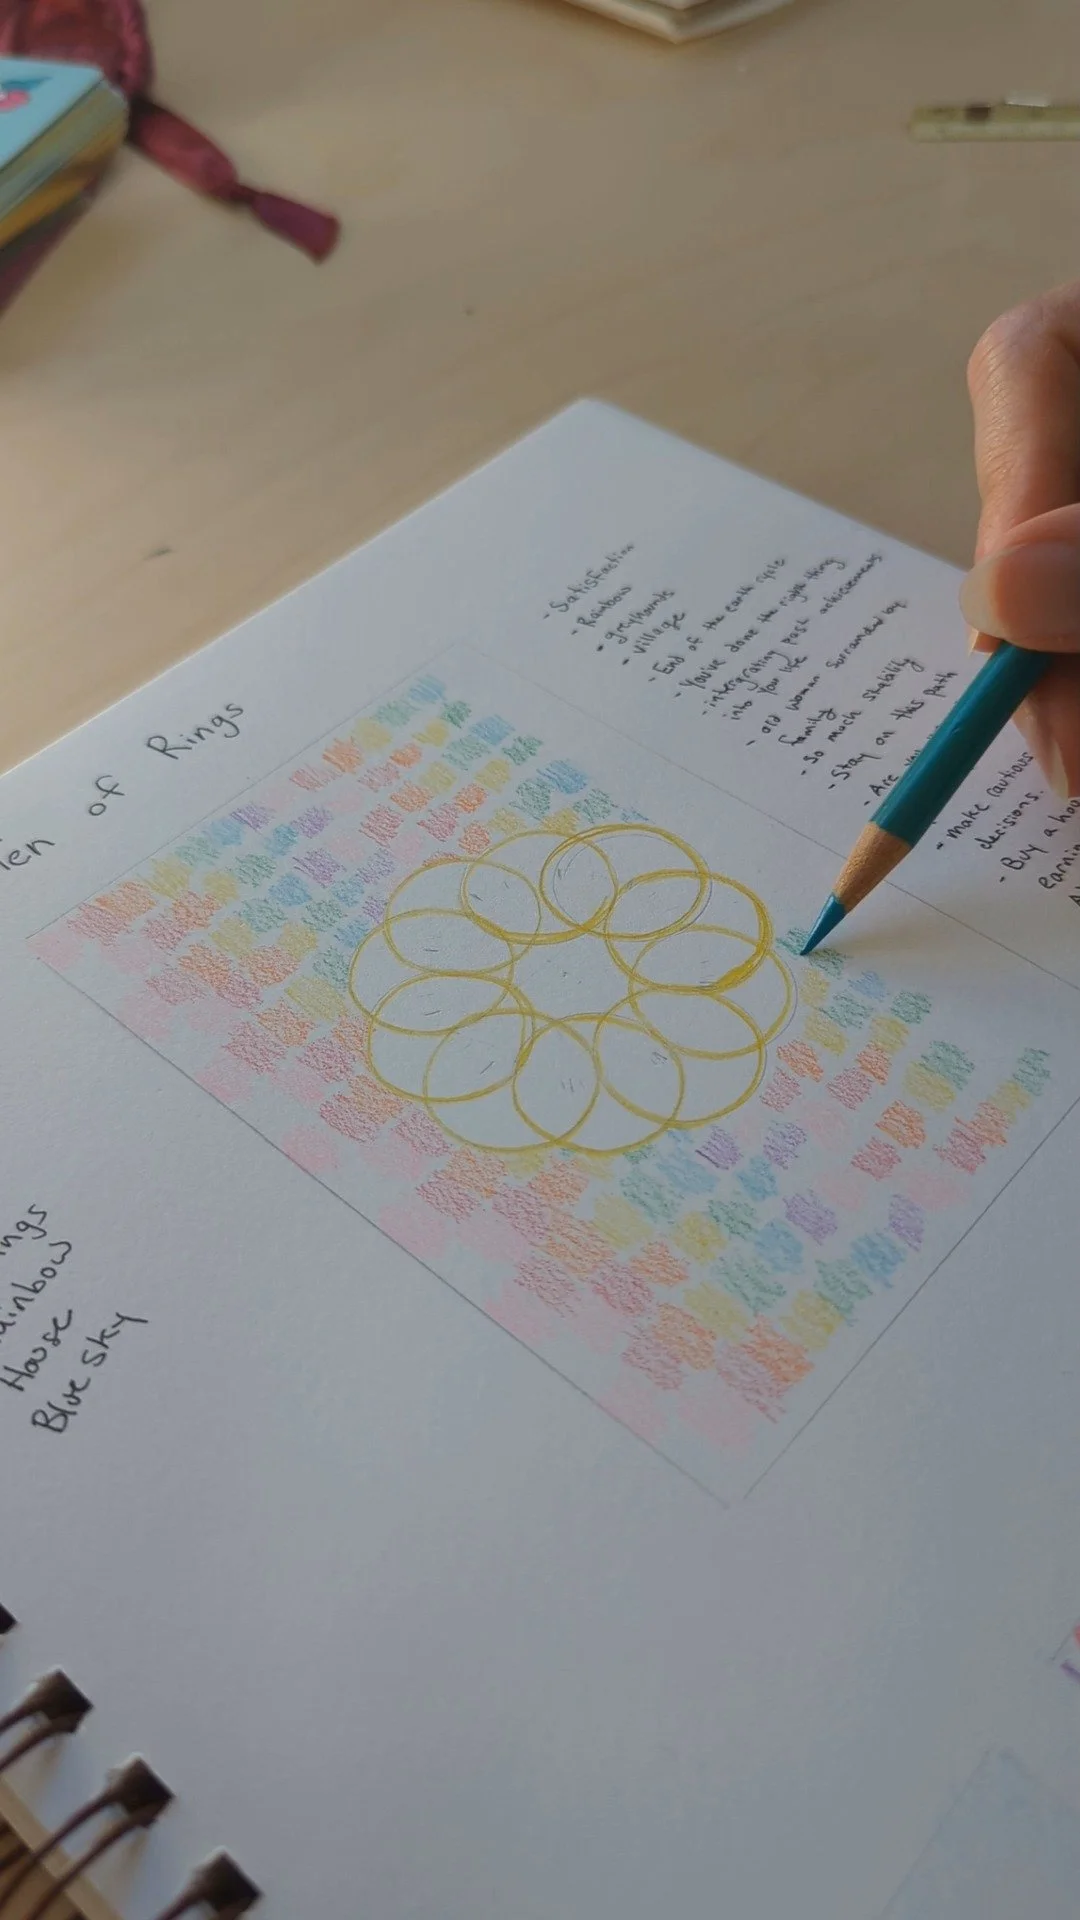 of Rings
- Satisfaction
- Rainbow
- greyhounds
- Village
- End of the earth cycle
- You've done the right thing
- intergrating past achievements
into your life
- old woman surrounded by
family
- So much stability
- Stay on this path
- Are you
- make cautious
decisions.
- Buy a
earnin
House
Blue sky